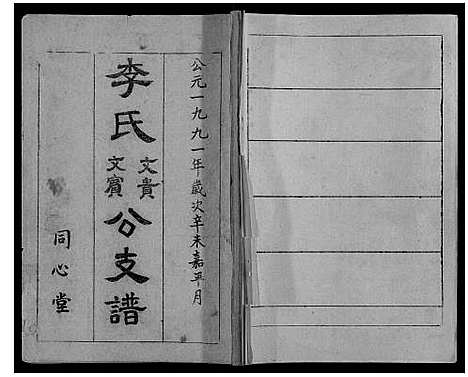 公元一九九一年歲次辛未嘉平月
李氏文貴文賓公支譜
同心堂